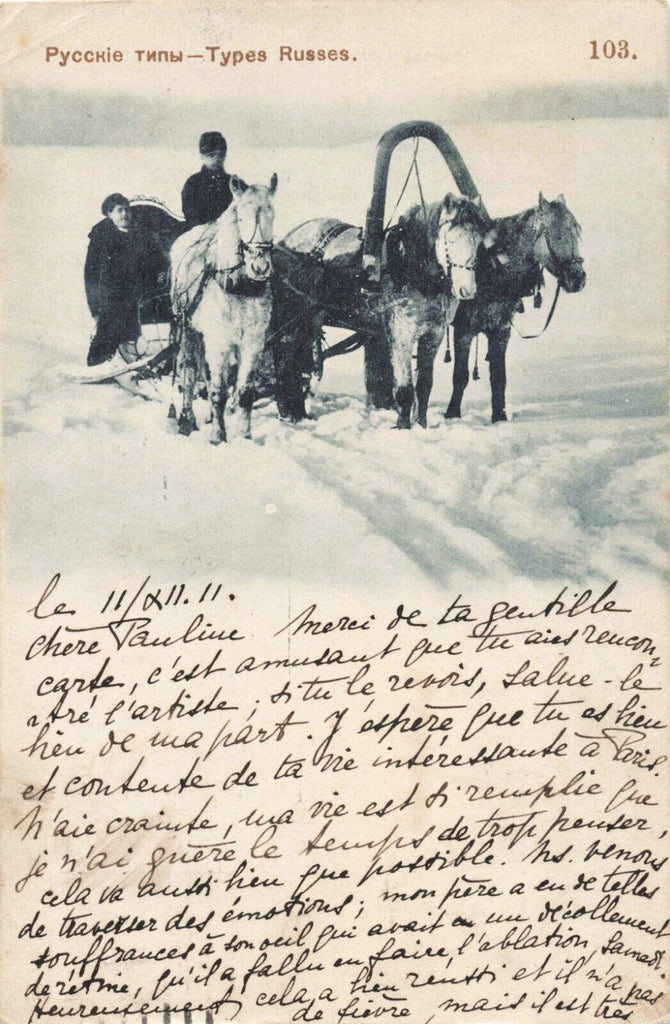 Русскіе типы—Types Russes.
103.
le 11/XII.11.
Chère Pauline Merci de ta gentille
carte, c'est amusant que tu aies rencon-
tré l'artiste; si tu le revois, salue-le
bien de ma part. J'espère que tu es bien
et contente de ta vie intéressante à Paris.
N'aie crainte, ma vie est si remplie que
je n'ai guère le temps de trop penser,
cela va aussi bien que possible. Ns. venons
de traverser des émotions; mon père a eu de telles
souffrances à son oeil, qui avait eu un décollement
de rétine, qu'il a fallu en faire l'ablation, samedi.
Heureusement cela a bien réussi et il n'a pas
de fièvre, mais il est très